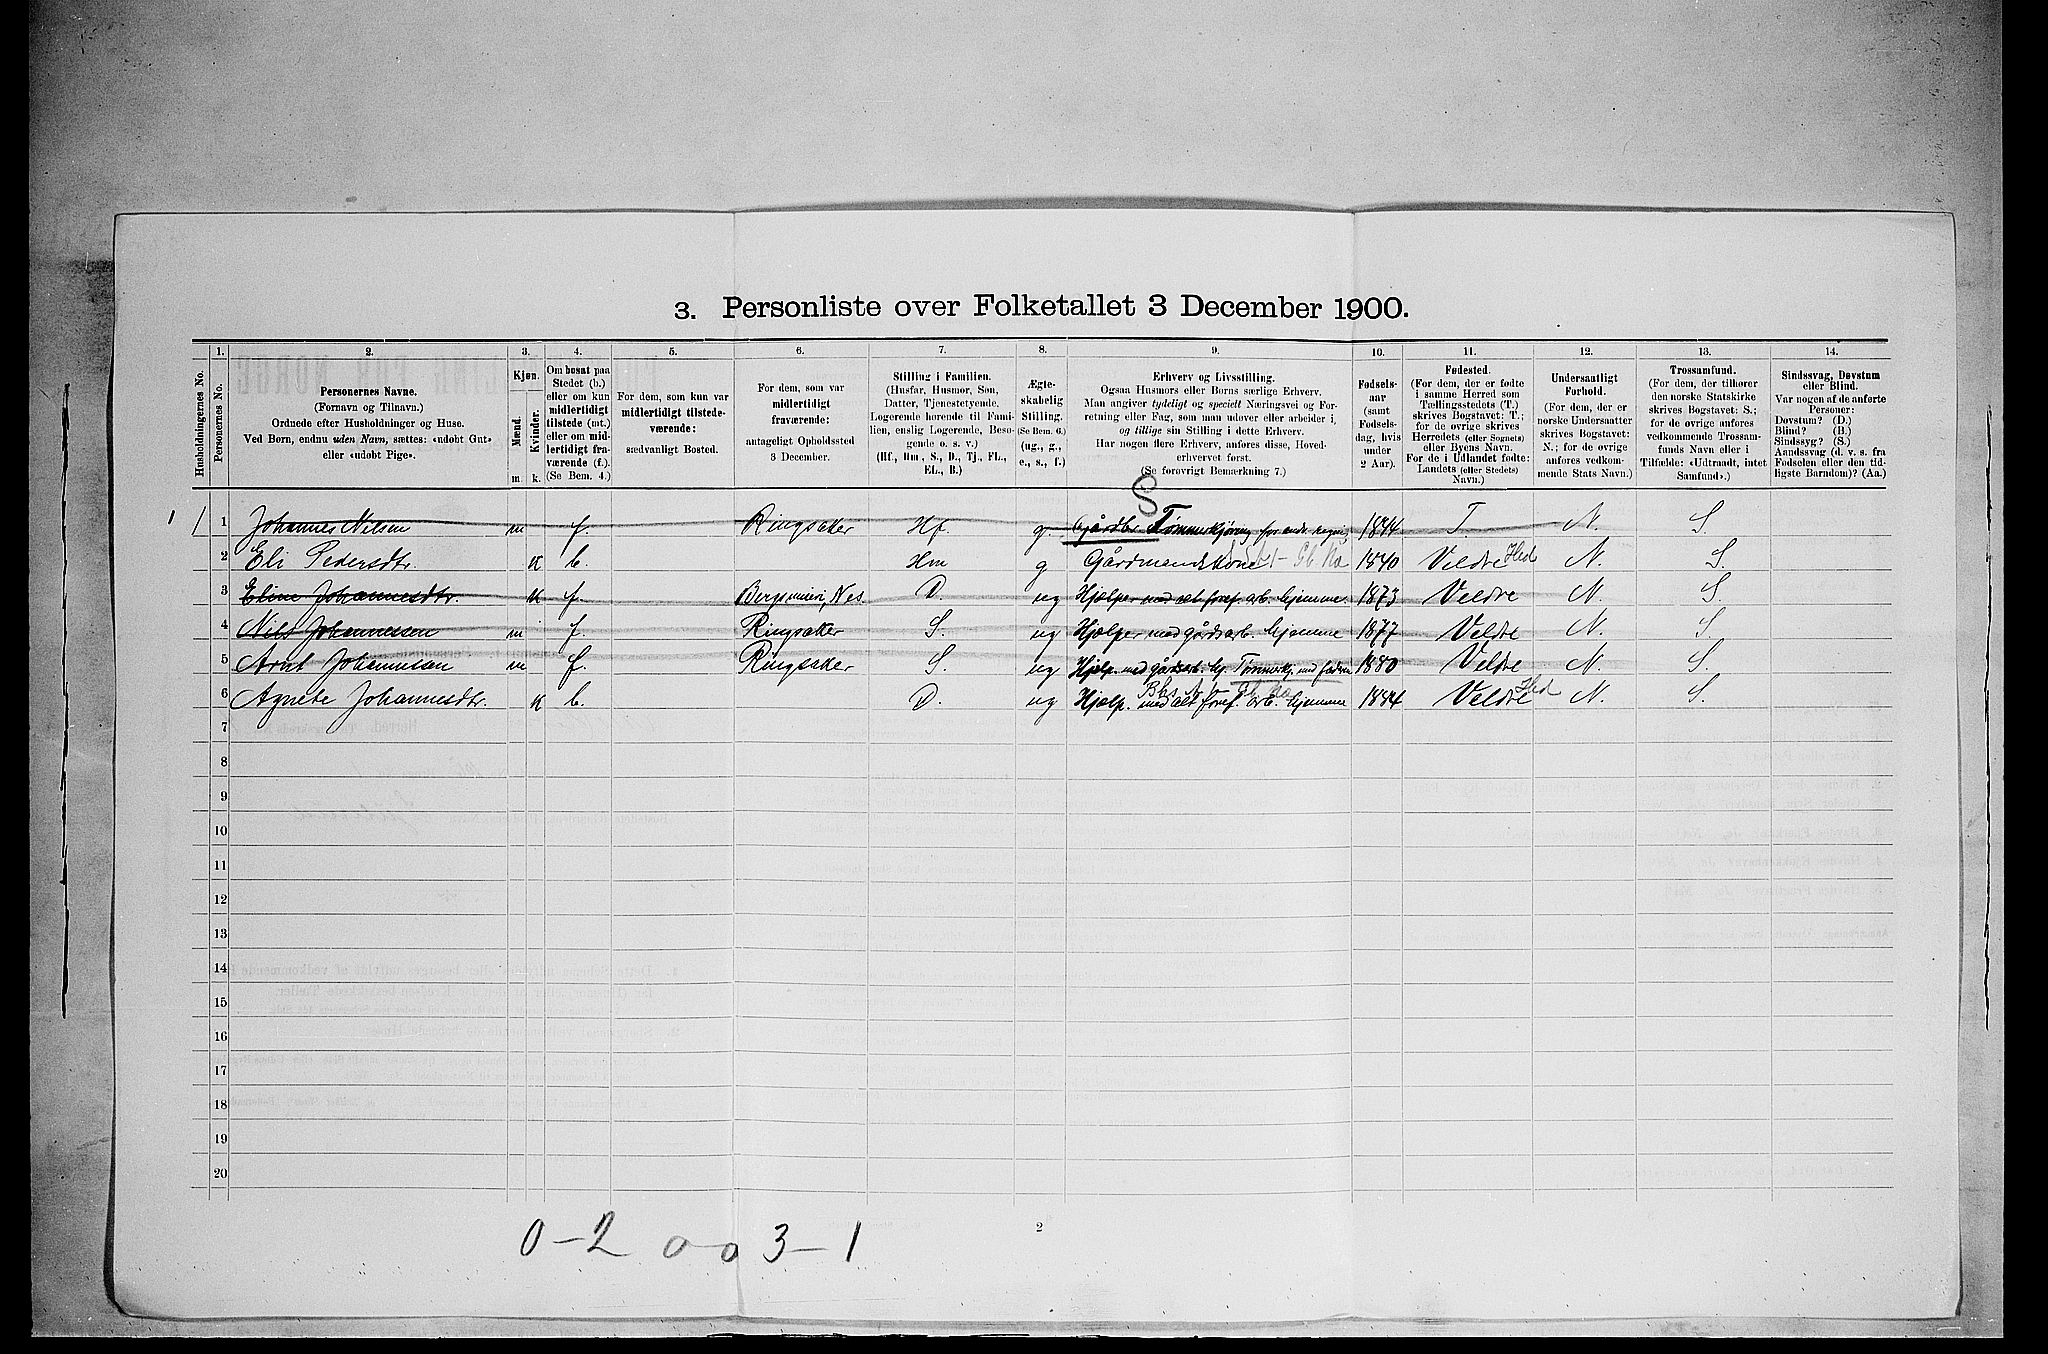 3. Personliste over Folketallet 3 December 1900.
1. 2. 3. 4. 5. 6. 7. 8. 9. 10. 11. 12. 13. 14.
Husholdningernes No.
Personernes No.
Personernes Navne.
(Fornavn og Tilnavn.)
Ordnede efter Husholdninger og Huse.
Ved Børn, endnu uden Navn, sættes: «udøbt Gut»
eller «udøbt Pige».
Kjøn.
Mænd. Kvinder.
m. k.
Om bosat paa
Stedet (b.)
eller om kun
midlertidigt
tilstede (mt.)
eller om mid-
lertidigt fra-
værende (f.).
(Se Bem. 4.)
For dem, som kun var
midlertidigt tilstede-
værende:
sædvanligt Bosted.
For dem, som var
midlertidigt
fraværende:
antageligt Opholdssted
3 December.
Stilling i Familien.
(Husfar, Husmor, Søn,
Datter, Tjenestetyende,
Logerende hørende til Fami-
lien, enslig Logerende, Besø-
gende o. s. v.)
(Hf., Hm., S., D., Tj., FL.,
EL., B.)
Ægte-
skabelig
Stilling.
(Se Bem. 6.)
(ug., g.,
e., s., f.)
Erhverv og Livsstilling.
Ogsaa Husmors eller Børns særlige Erhverv.
Man angiver tydeligt og specielt Næringsvei og For-
retning eller Fag, som man udøver eller arbeider i,
og tillige sin Stilling i dette Erhverv.
Har nogen flere Erhverv, anføres disse, Hoved-
erhvervet først.
(Se forøvrigt Bemærkning 7.)
Fødsels-
aar
(samt
Fødsels-
dag, hvis
under
2 Aar).
Fødested.
(For dem, der er fødte
i samme Herred som
Tællingsstedets (T.)
skrives Bogstavet: T.;
for de øvrige skrives
Herredets (eller Sognets)
eller Byens Navn.
For de i Udlandet fødte:
Landets (eller Stedets)
Navn.)
Undersaatligt
Forhold.
(For dem, der er
norske Undersaatter
skrives Bogstavet:
N.; for de øvrige
anføres vedkom-
mende Stats Navn.)
Trossamfund.
(For dem, der tilhører
den norske Statskirke
skrives Bogstavet: S.;
for de øvrige anføres
vedkommende Trossam-
funds Navn eller i
Tilfælde: «Udtraadt, intet
Samfund».)
Sindssvag, Døvstum
eller Blind.
Var nogen af de anførte
Personer:
Døvstum? (D.)
Blind? (B.)
Sindssyg? (S.)
Aandssvag (d. v. s. fra
Fødselen eller den tid-
ligste Barndom)? (Aa.)
S
1 1 Johannes Nilsen m f. Ringsaker Hf. g Gårdbr. Tømmerkjøring for 1844 T. N. S.
2 Eli Pedersdtr. K b. Hm g Gårdmandskone 1840 Veldre Hed N. S.
3 Eline Johannesdtr. K f. Nes. D. ug Hjælper med alt foref. arb. hjemme. 1873 Veldre N. S
4 Nils Johannessen m f. Ringsaker S. ug Hjælper med gårdsarb. hjemme 1877 Veldre N. S.
5 Arnt Johannessen m f. Ringsaker S. ug Hjælp. med gårdsarb. hj. Tømmerkj. med faderen 1880 Veldre N. S.
6 Agnete Johannesdtr. K b. D. ug Hjælp. med alt foref. arb. hjemme 1884 Veldre Hed N. S.
7
8
9
10
11
12
13
14
15
16
17
18
19
20
0-2 0-0 3-1
2